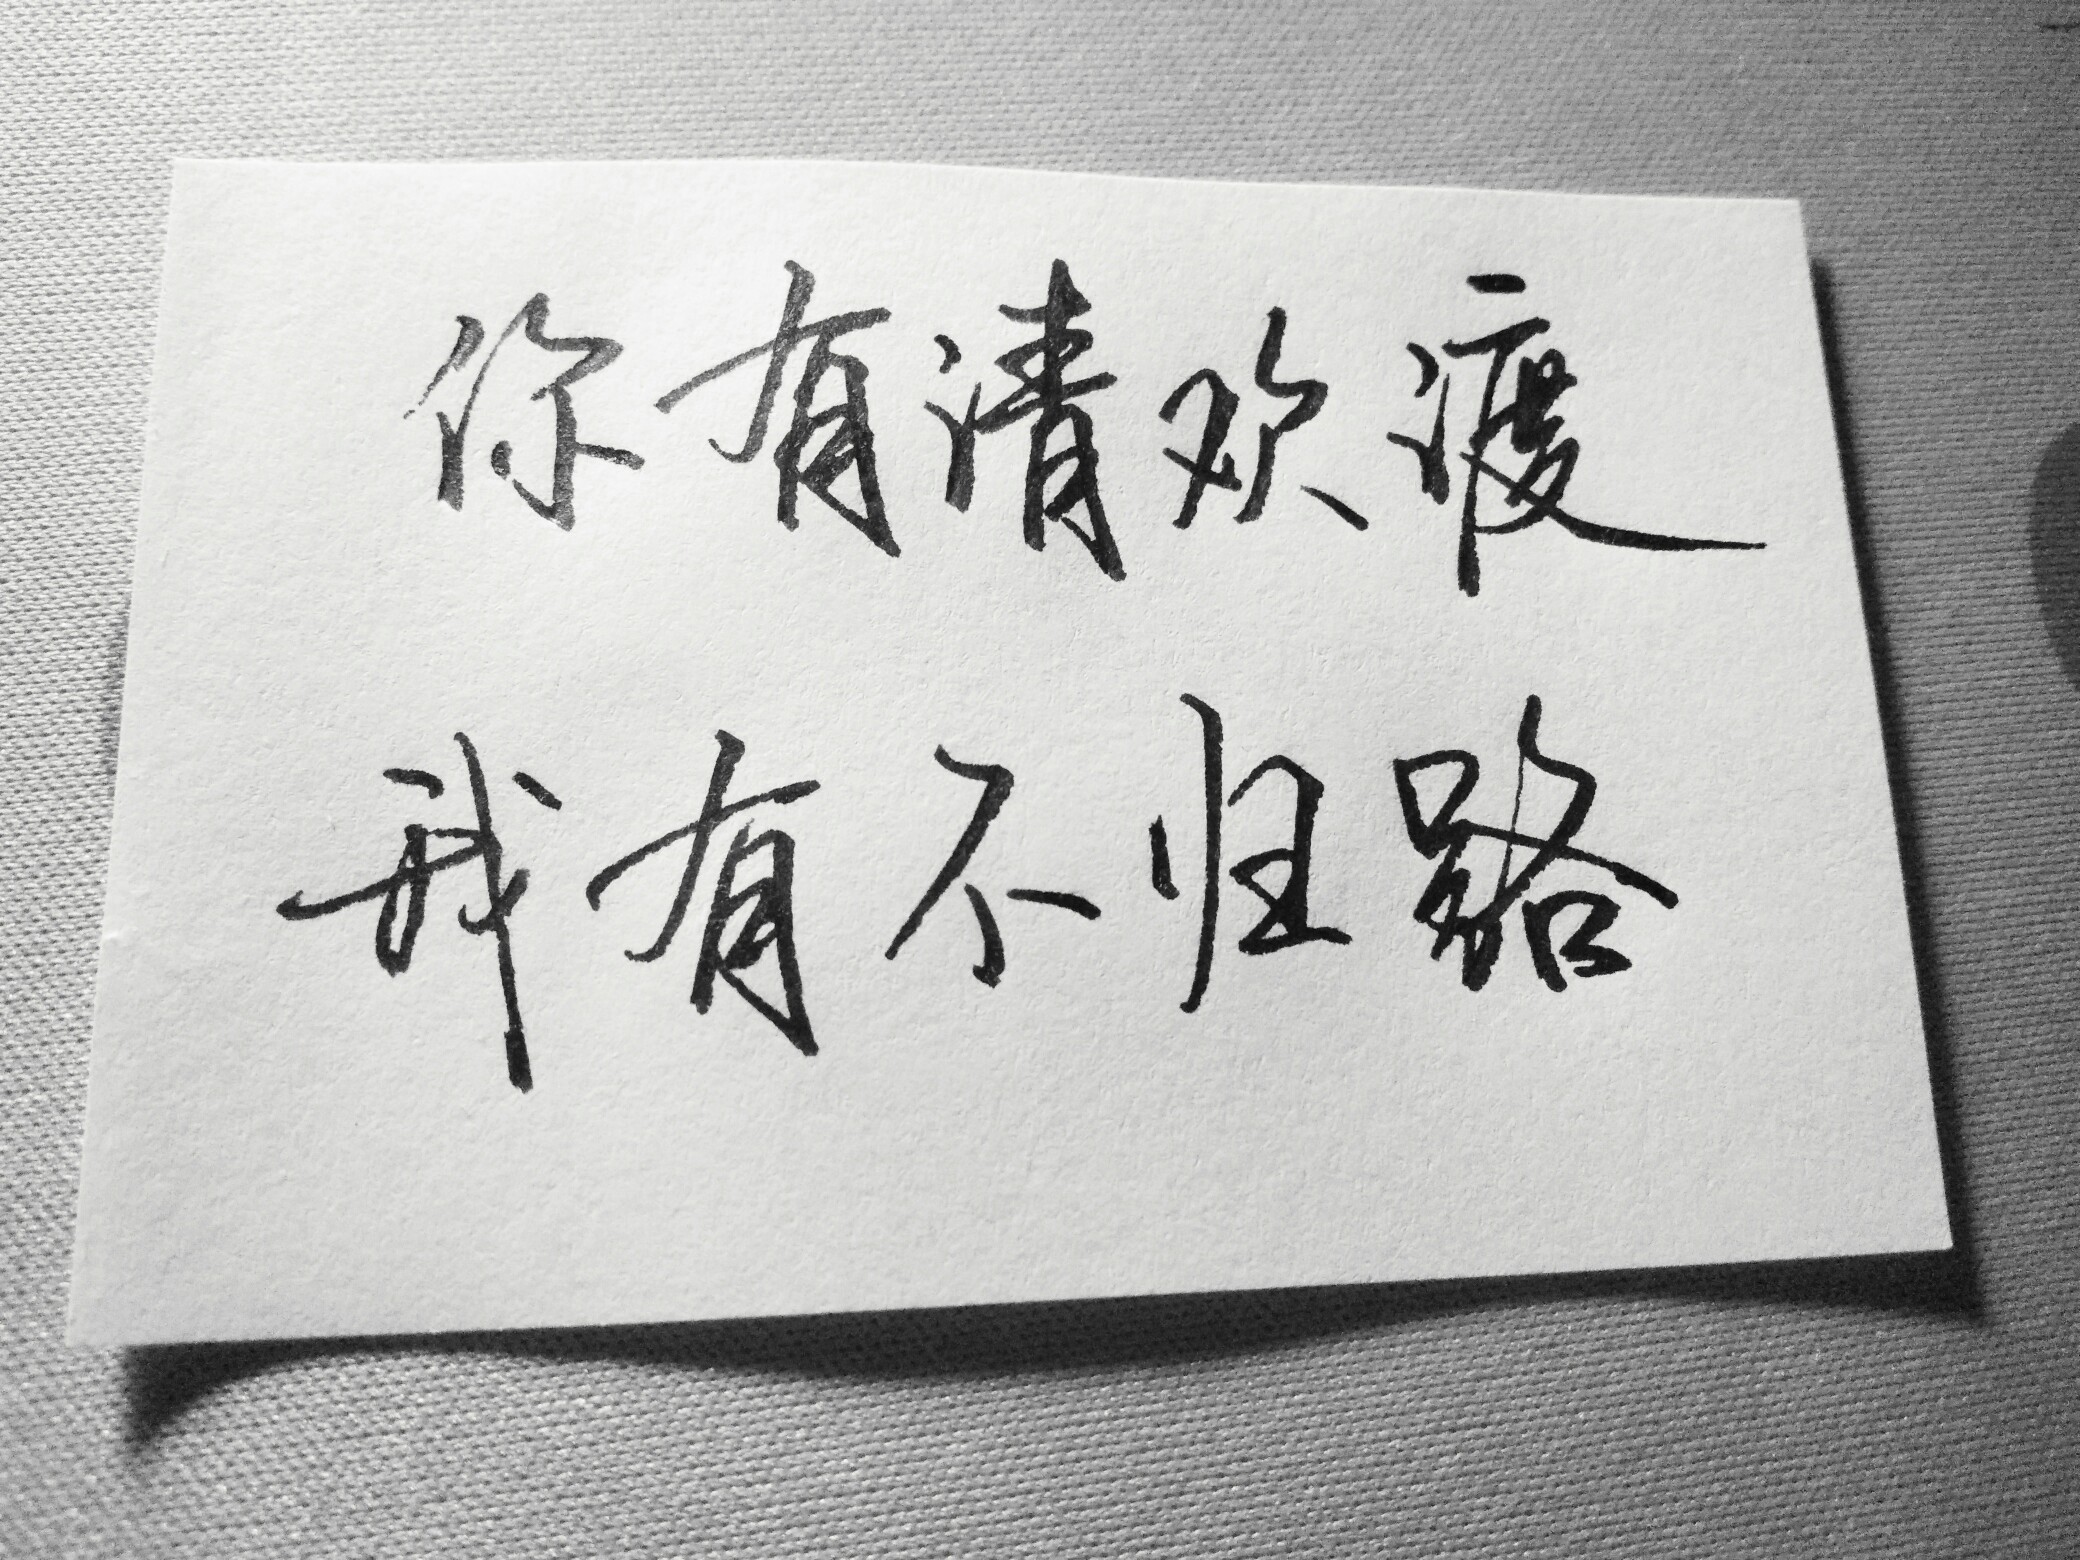 你有清欢渡
我有不归路